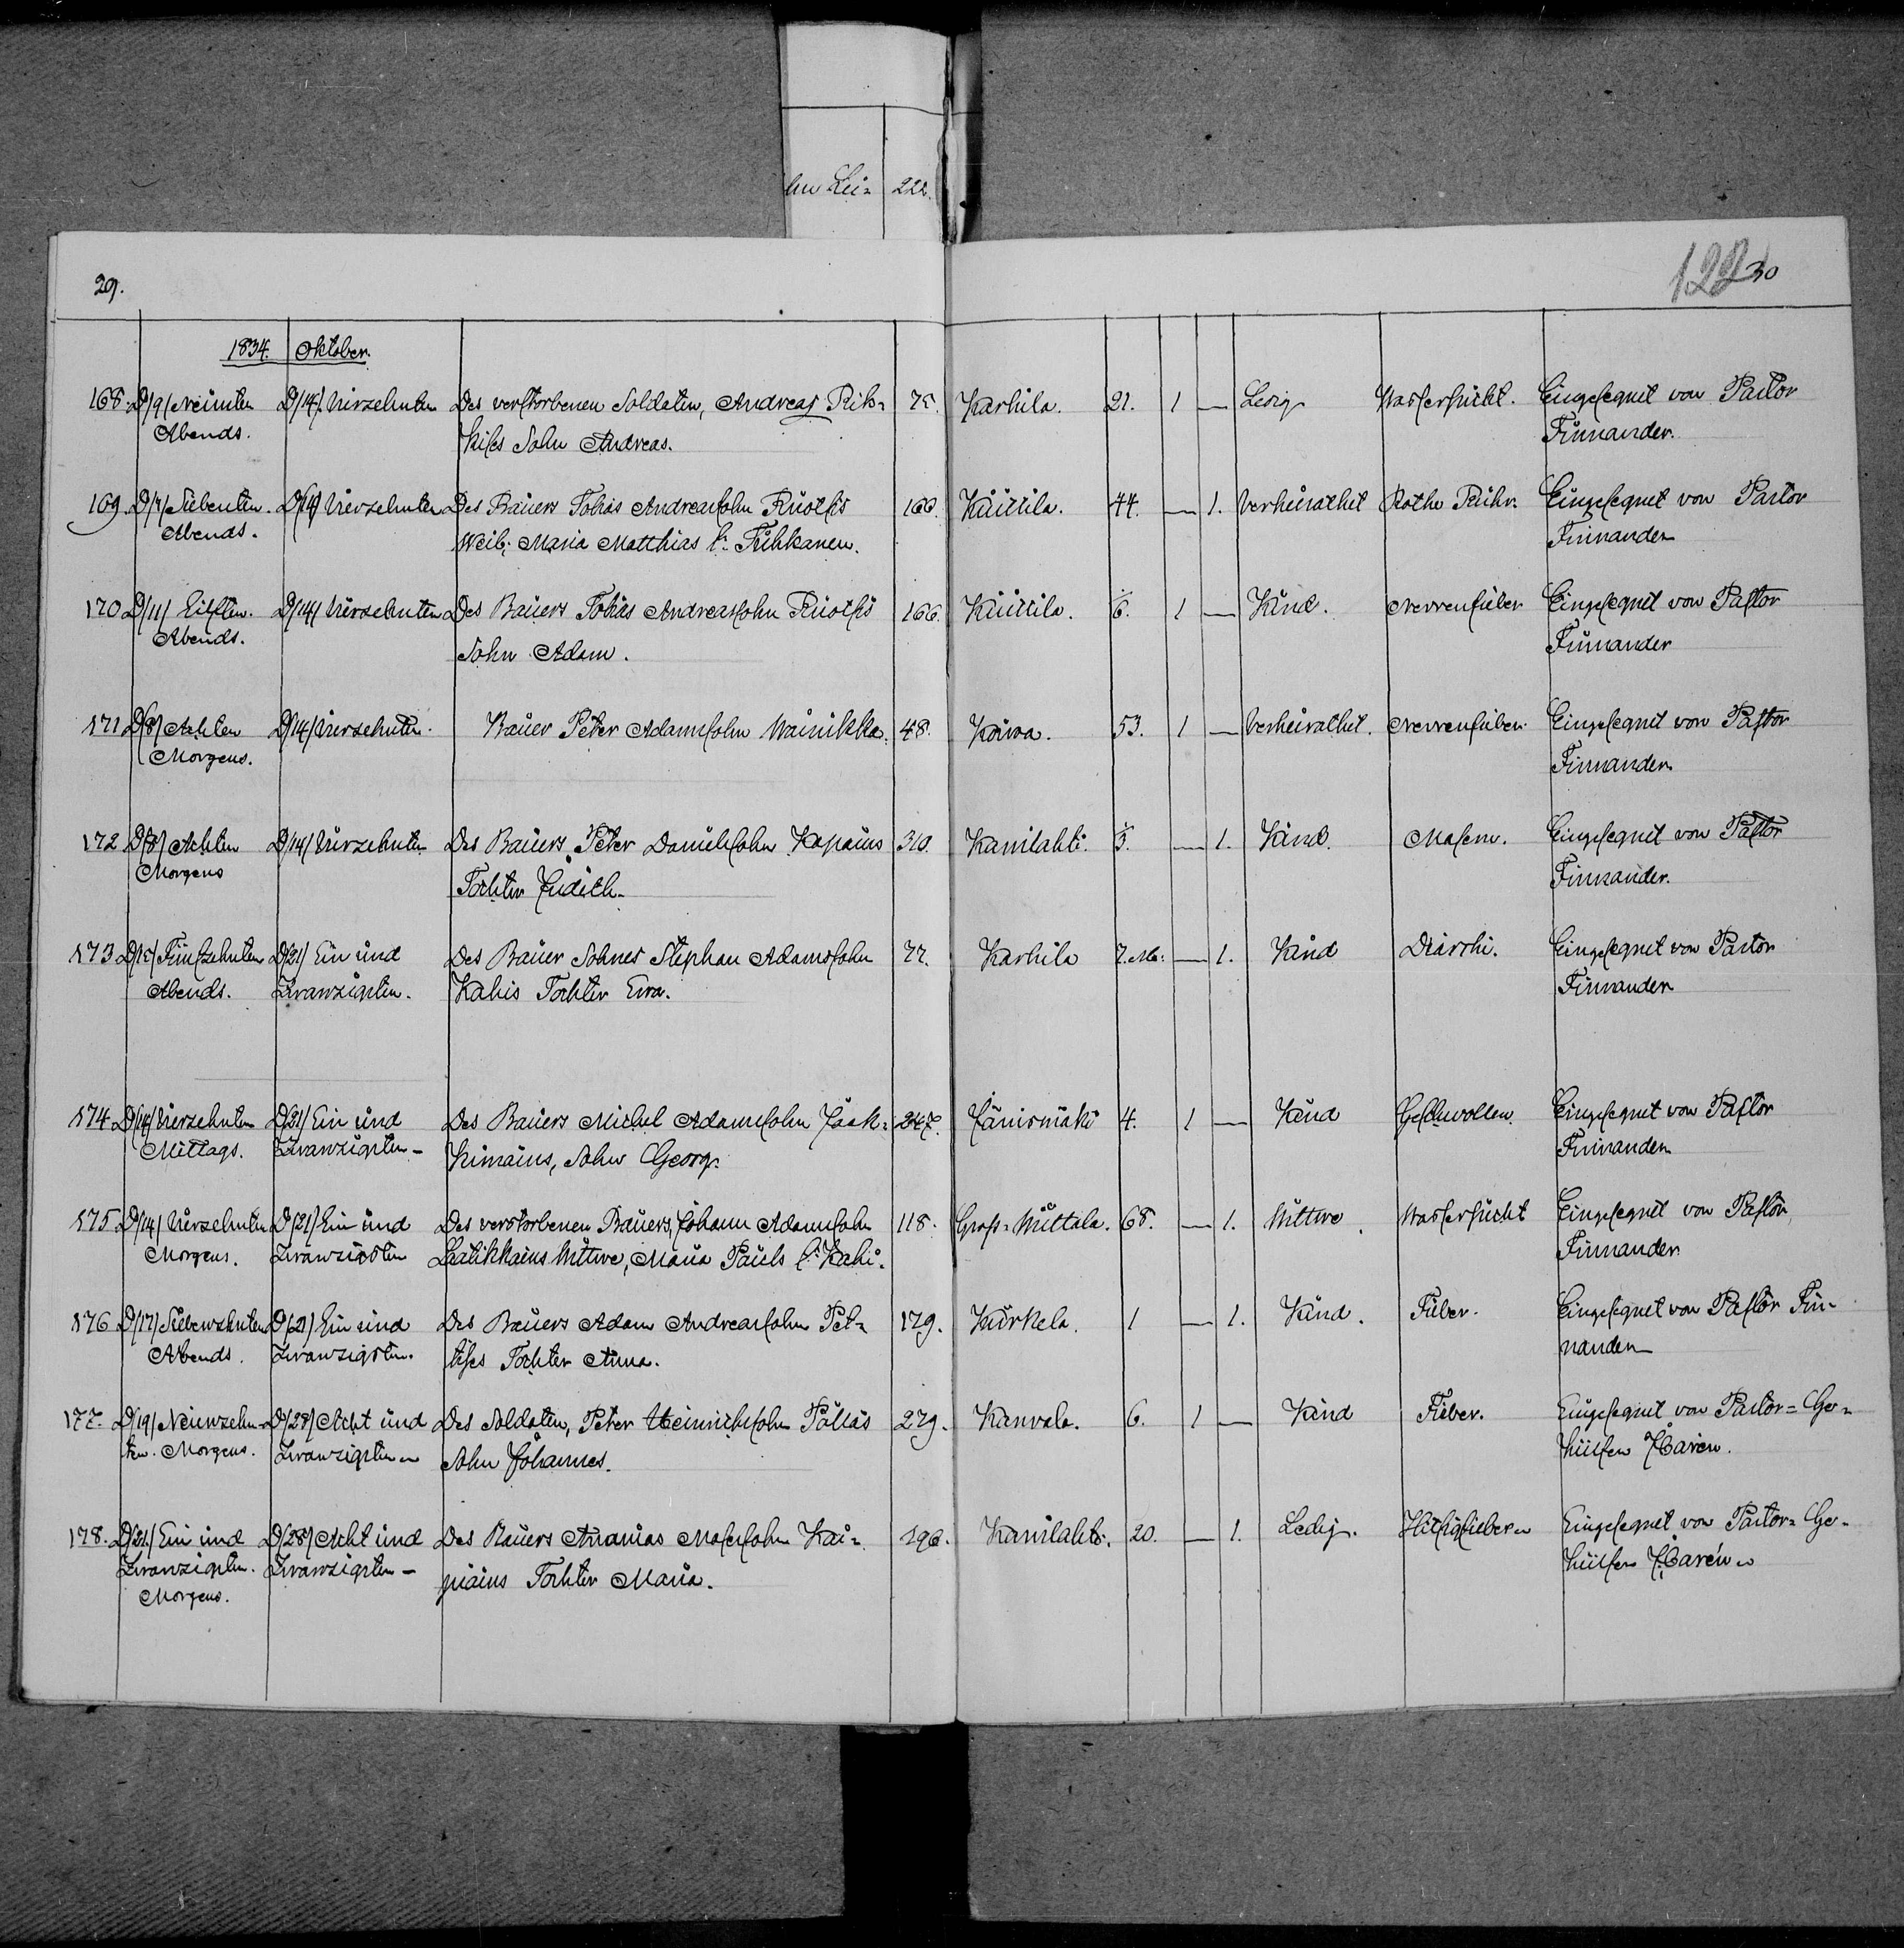 hn Lei= 222.
29.
122 30
1834. Oktober.
168. D/9/ Neunten D/14/ Vierzehnten Des verstorbenen Soldaten, Andreas Rik= 75. Karhila. 21. 1 — Ledig Wassersucht. Eingesegnet von Pastor
Abends. kises Sohn Andreas. Finnander.
169. D/7/ Siebenten. D/14/ Vierzehnten Des Bauers Tobias Andreassohn Ruotsis 166. Küttila. 44. — 1. Verheirathet Rothe Ruhr. Eingesegnet von Pastor
Abends. Weib: Maria Matthias t: Tuhkanen. Finnander
170 D/11/ Eilften. D/14/ Vierzehnten Des Bauers Tobias Andreassohn Ruotsis 166. Küttila. 6. 1 — Kind. Nervenfieber Eingesegnet von Pastor
Abends. Sohn Adam. Finnander
171 D/8/ Achten D/14/ Vierzehnten. Bauer Peter Adamssohn Wainikka. 48. Koiwa. 53. 1 — Verheirathet. Nervenfieber. Eingesegnet von Pastor
Morgens. Finnander
172 D/8/ Achten D/14/ Vierzehnten Des Bauers Peter Danielssohn Kapains 310. Kanilahti. 3. — 1. Kind. Masern. Eingesegnet von Pastor
Morgens Tochter Judith. Finnander.
173 D/15/ Fünfzehnten D/21/ Ein und Des Bauer Sohnes Stephan Adamssohn 77. Karhila 7. Mo: — 1. Kind Diarrhi. Eingesegnet von Pastor
Abends. Zwanzigsten. Kahis Tochter Ewa. Finnander
174 D/14/ Vierzehnten D/21/ Ein und Des Bauers Michel Adamssohn Jääs= 247. Jänismäki 4. 1 — Kind Geschwollen Eingesegnet von Pastor
Mittags. Zwanzigsten — kimains, Sohn Georg. Finnander
175 D/14/ Vierzehnten D/21/ Ein und Des verstorbenen Bauers, Johann Adamssohn 118. Gross-Wüttala. 68. — 1. Wittwe Wassersucht Eingesegnet von Pastor
Morgens. Zwanzigsten Laatikkains Wittwe, Maria Pauls t: Kahi. Finnander.
176 D/17/ Siebenzehnten D/21/ Ein und Des Bauers Adam Andreassohn Pet= 179. Kürkela. 1 — 1. Kind. Fieber. Eingesegnet von Pastor Fin=
Abends. Zwanzigsten. tises Tochter Anna. nander
177. D/19/ Neunzehn= D/28/ Acht und Des Soldaten, Peter Heinrichssohn Pälläs 279. Kanvala. 6. 1 — Kind Fieber. Eingesegnet von Pastor=Ge=
ten. Morgens. Zwanzigsten Sohn Johannes. hülfen Haren.
178. D/21/ Ein und D/28/ Acht und Des Bauers Ananias Mosessohn Kai= 296. Kanilahti. 20. — 1. Ledig. Hitzigfieber Eingesegnet von Pastor=Ge=
Zwanzigsten. Zwanzigsten — piains Tochter Maria. hülfen Haren
Morgens.